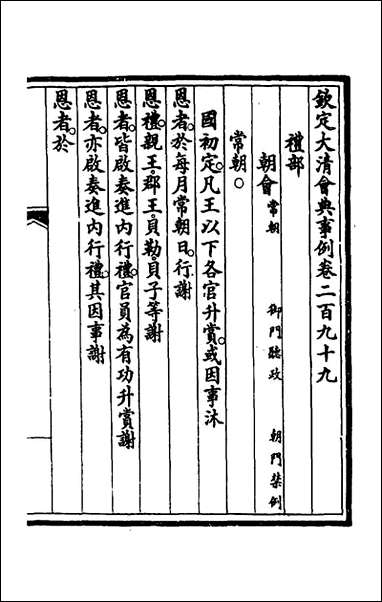 欽定大清會典事例卷二百九十九
禮部
朝會常朝 御門聽政 朝門禁例
常朝○
國初定。凡王以下各官升賞。或因事沐
恩者。於每月常朝日。行謝
恩禮。親王。郡王。貝勒。貝子等謝
恩者。皆啟奏進內行禮。官員為有功升賞謝
恩者。亦啟奏進內行禮。其因事謝
恩者。於